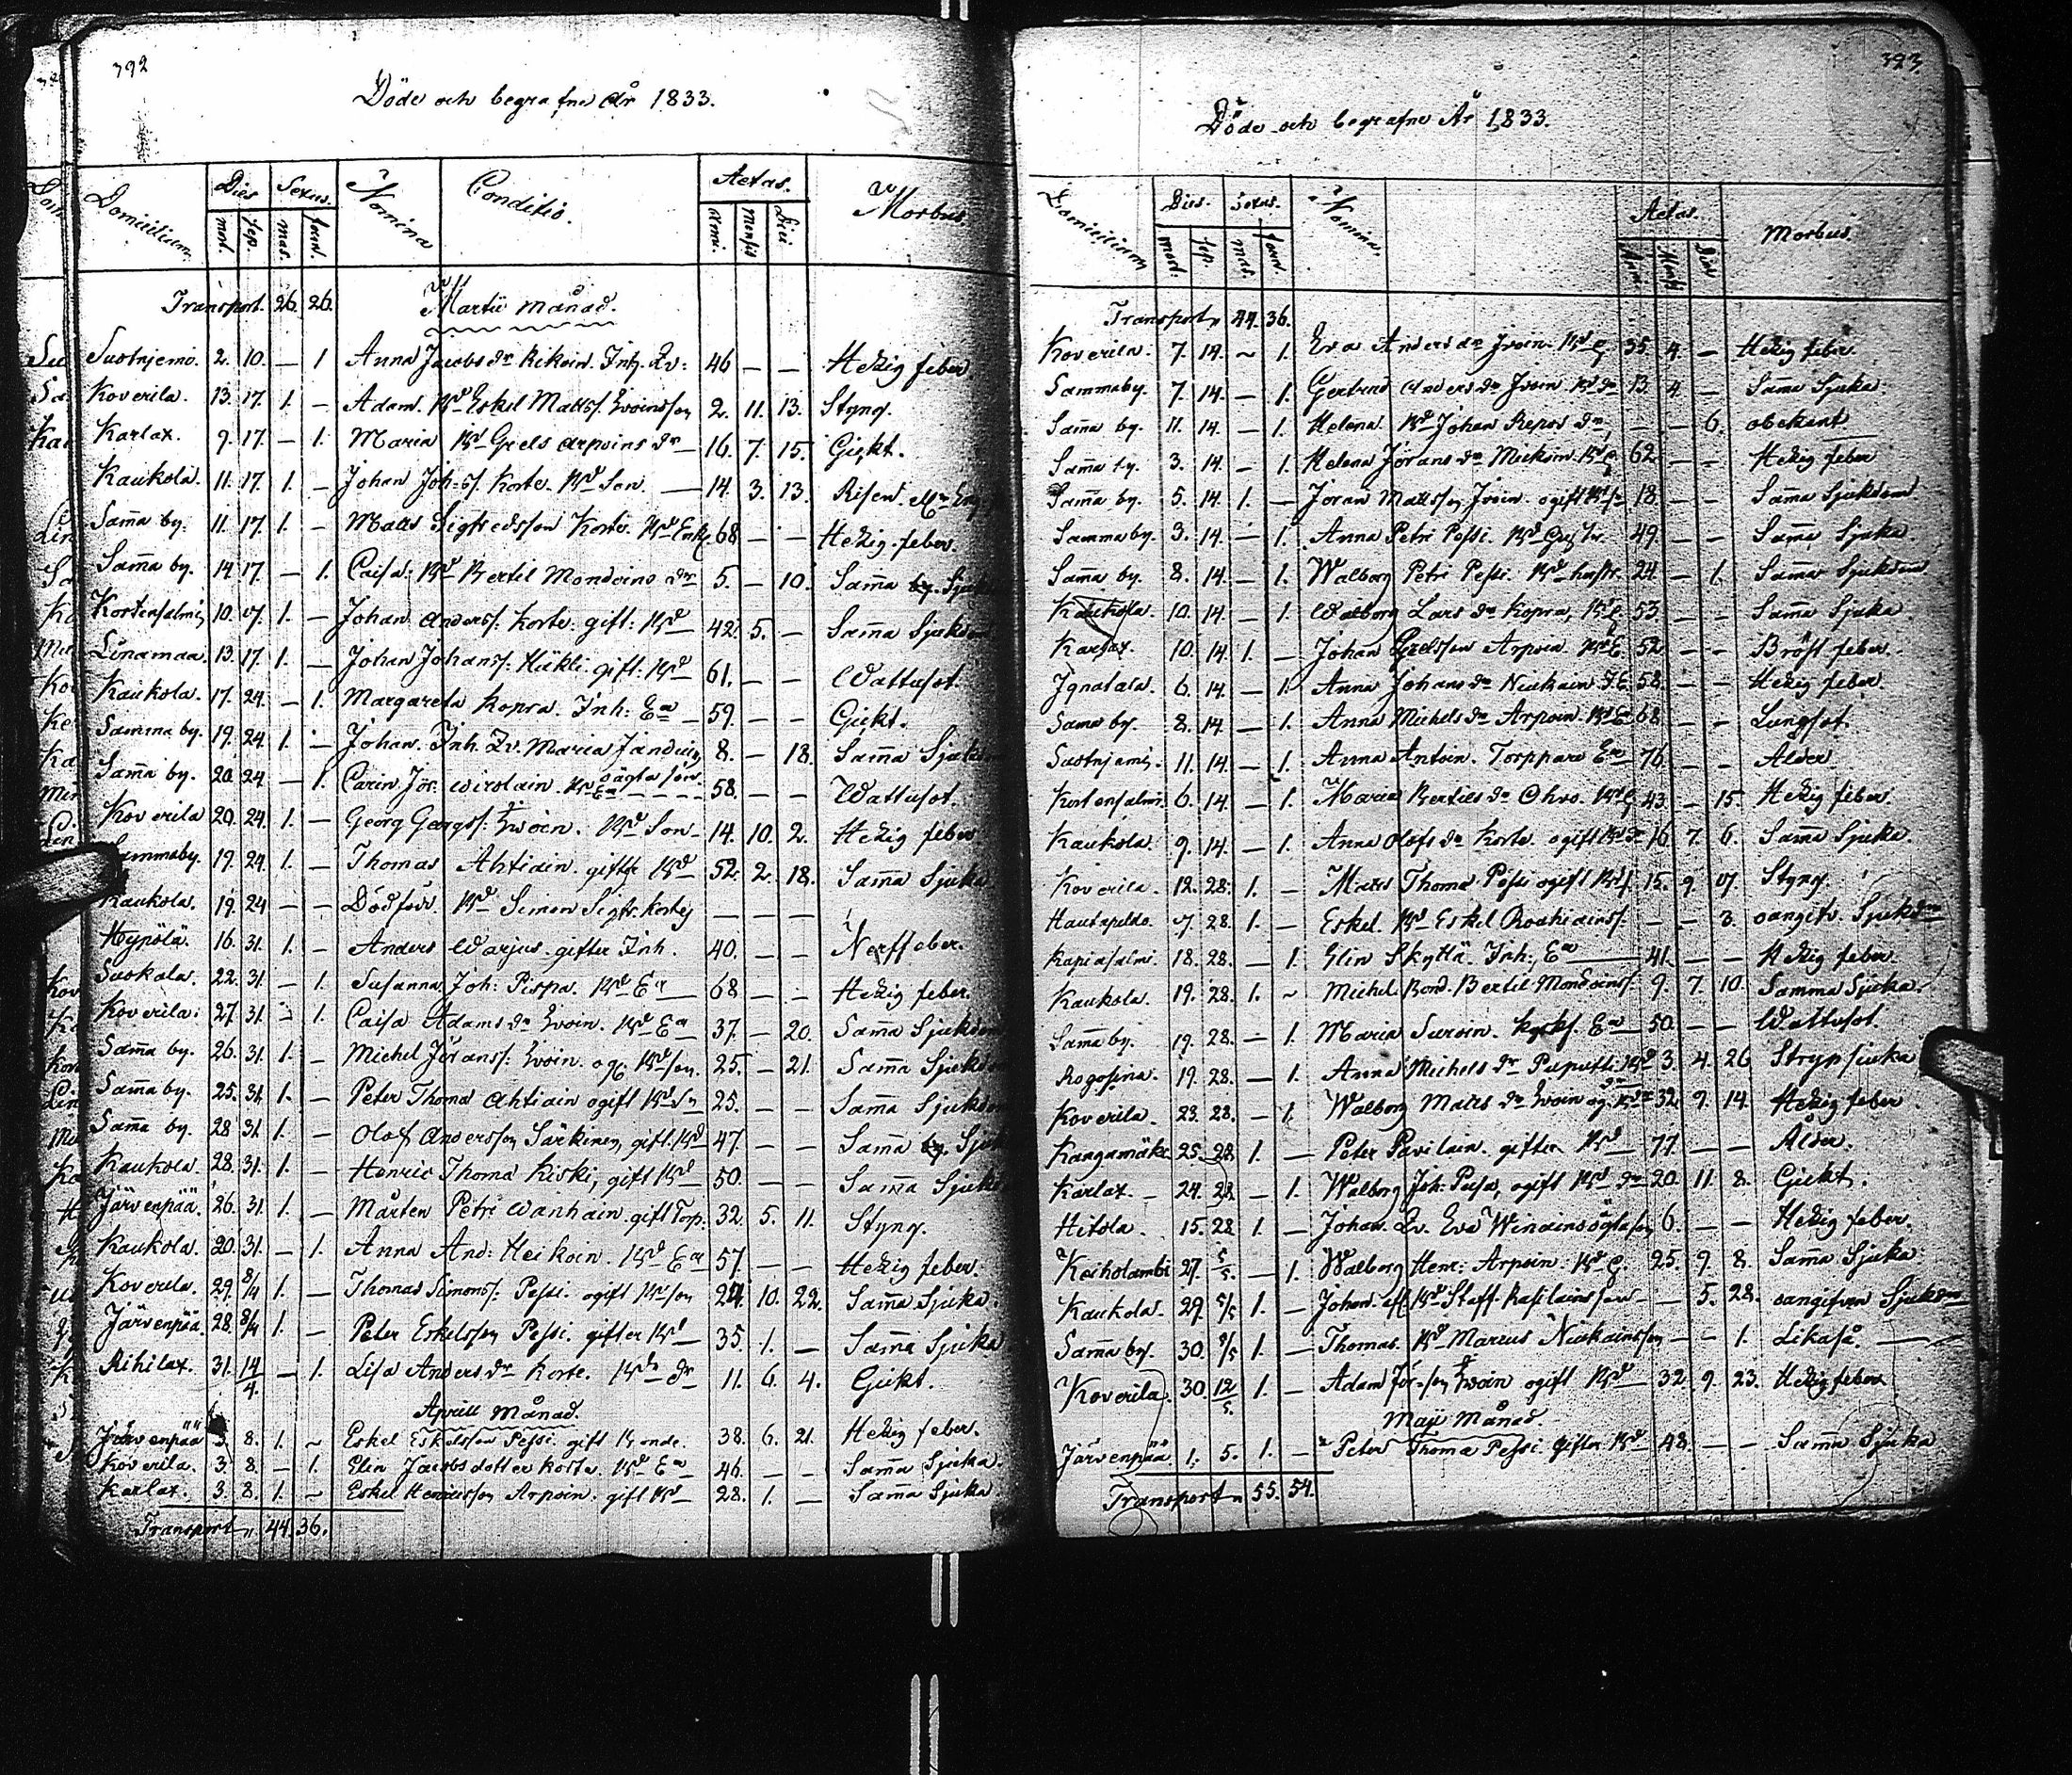 392
Döde och begrafne År 1833.
Domicilium. Dies Sexus. Nomina Conditio. Aetas. Morbus.
mort. sep. mas. foem. Anni. Mensis Dies
Transport. 26. 26. Martii Månad.
Suotnjemi. 2. 10. — 1 Anna Jacobs dr Inh. 46 — — Hetzig feber
Koverila. 13. 17. 1. — Adam. Bd Eskel Matts 2. 11. 13. Styng.
Karlax. 9. 17. — 1. Maria Bd Grels Arpoins dr — 16. 7. 15. Gickt.
Kaukola. 11. 17. 1. — Johan Joh: Korte. Bd Son. — 14. 3. 13. Risen.
Sama by. 11. 17. 1. — Matts Sigfredsson Korte. Bd Enk. 68 — — Hetzig feber.
Sama by. 14. 17. — 1. Caisa. Bd Bertil Mondoins dr 5. — 10. Sama Sjuk
Kortensalmi 10. 17. 1. — Johan Anderss: Korte: gift: Bd — 42. 5. — Sama Sjukdom
Linamaa. 13. 17. 1. — Johan Johanss: Häkli. gift: Bd 61. — — Wattusot.
Kaukola. 17. 24. — 1. Margareta Kopra. Inh: Ea — 59. — — Gickt.
Samma by. 19. 24. 1. — Johan. Inh. Maria 8. — 18. Sama Sjukdom
Sama by. 20. 24. — 1. Carin Jör. Wirolain. 58. — — Wattusot.
Koverila 20. 24. 1. — Georg Georgs: Ivoin. Bd Son — 14. 10. 2. Hetzig feber
Sammaby. 19. 24. 1. — Thomas Ahtiain. gifter Bd 52. 2. 18. Sama Sjuka
Kaukola. 19. 24 — — Dödför. Bd Simon Sigfr. — — —
Hypölä. 16. 31. 1. — Anders Warjus. gifter Inh. 40. — — Nerffeber.
Suokala. 22. 31. — 1. Susanna Joh: Pispa. Bd Ea 68 — — Hetzig feber.
Koverila: 27. 31. — 1. Caisa Adams dr Ivoin. Bd Ea 37. — 20. Sama Sjukdom
Sama by. 26. 31. 1. — Michel Jöranss: Ivoin. og. Bd son. 25. — 21. Sama Sjukdom
Sama by. 25. 31. 1. — Peter Thoma Ahtiain ogift Bd Sn 25. — — Sama Sjukdom
Sama by. 28 31. 1. — Olof Andersson Särkinen, gift. Bd 47 — — Sama Sjuk
Kaukola. 28. 31. 1. — Henric Thoma Kiski, gift Bd 50. — — Sama Sjuk
Järvenpää. 26. 31. 1. — Mårten Petri Wanhain. gift Torp. 32. 5. 11. Styng.
Kaukola. 20. 31. — 1. Anna And: Heikoin. Bd Ea 57. — — Hetzig feber.
Koverila. 29. 8/4 1. — Thomas Simons: Pessi. ogift Bd son 24. 10. 22. Sama Sjuka.
Järvenpää. 28. 8/4 1. — Peter Eskelsson Pessi. gifter Bd 35. 1. — Sama Sjuka
Rihilax. 31. 14/4. — 1. Lisa Anders. dr Korte. Bds dr 11. 6. 4. Gickt.
Aprill Månad.
Järvenpää 3. 8. 1. — Eskel Eskelsson Pessi. gift Bonde. 38. 6. 21. Hetzig feber.
Koverila. 3. 8. — 1. Elin Jacobs dotter Korte. Bd Ea 46. — — Sama Sjuka
Karlax. 3. 8. 1. — Eskel Henricsson Arpoin. gift Bd — 28. 1. — Sama Sjuka
Transport „ 44. 36.
393
Döde och begrafne År 1833.
Domicilium Dies. Sexus. Nomina. Aetas. Morbus.
Mort. Sep. Mas. foem Anni. Mens. Dies
Transport „ 44. 36.
Koverila. 7. 14. — 1. Eva Anders dr Ivoin. Bd 35. 4. — Hetzig feber
Sammaby. 7. 14. — 1. Gertrud Anders dr Ivoin Bd dr 13 4 — Sama Sjuka.
Sama by. 11. 14. — 1. Helena Bd Johan Repos dr — — 6. obekant
Sama by. 3. 14. — 1. Helena Jörans dr Bd 62. — — Hetzig feber
Sama by. 5. 14. 1. — Jöran Mattsson Ivoin. ogift Bd 18 — — Sama Sjukdom
Sammaby. 3. 14. — 1. Anna Petri Pessi. Bd 49. — — Sama Sjuka
Sama by. 8. 14. — 1. Walborg Petri Pessi. Bd hustr. 24. — 1. Sama Sjukdom
Kaukola. 10. 14. — 1. Walborg Lars dr Kopra, 53. — — Sama Sjuka
Karlax. 10. 14. 1. — Johan Grelsson Arpoin. Bd E. 52. — — Bröst feber.
Ignatala. 6. 14. — 1. Anna Johans dr Niukain I.E. 58. — — Hetzig feber.
Sama by. 8. 14. — 1. Anna Michels dr Arpoin. Bd Ea 68. — — Lungsot.
Suotnjemi. 11. 14. — 1. Anna Antoin. Torppare Ea 76. — — Ålder.
Kortensalmi. 6. 14. — 1. Maria Bertils dr Ohvo. Bd 43. — 15. Hetzig feber.
Kaukola. 9. 14. — 1. Anna Olofs dr Korte. ogift Bd dr 16 7. 6. Sama Sjuka.
Koverila. 12. 28. 1. — Matts Thoma Pessi ogift Bd 15. 9. 17. Styng.
7. 28. 1. — Eskel. Bd Eskel — — 3. oangifv. Sjukdom
Kapiasalmi. 18. 28. — 1. Elin Skyttä. Inh: Ea — 41. — — Hetzig feber.
Kaukola. 19. 28. 1. ~ Michel. Bond. Bertil Mondoins. 9. 7. 10. Samma Sjuka.
Sama by. 19. 28. — 1. Maria Suroin. Ea 50. — — Wattusot.
Rogosina. 19. 28. — 1. Anna Michels dr Puputti 3. 4. 26 Strypsjuka
Koverila. 23. 28. — 1. Walborg Matts dr Ivoin og. 32. 9. 14. Hetzig feber
Kangamäke. 25. 28. 1. — Peter Pavilain. gifter Bd 77. — — Ålder.
Karlax. — 24. 28. — 1. Walborg Joh: ogift Bd dr 20. 11. 8. Gickt.
Hitola. 15. 28 1. — Johan. Eva oägta son 6. — — Hetzig feber.
27. 5/5. — 1. Walborg Henr: Arpoin. Bd 25. 9. 8. Sama Sjuka
Kaukola. 29. 5/5 1. — Johan Bd Staff. — 5. 28. oangifven Sjukdom
Sama by. 30. 5/5 1. — Thomas. Bd Marcus Niukainsson — — 1. Likaså
Koverila. 30. 12/5. 1. — Adam Jör-son Ivoin ogift Bd 32. 9. 23. Hetzig feber
Maji Månad.
Järvenpää 1. 5. 1. — Peter Thoma Pessi. gifter Bd 48. — — Sama Sjuka
Transport „ 55. 54.